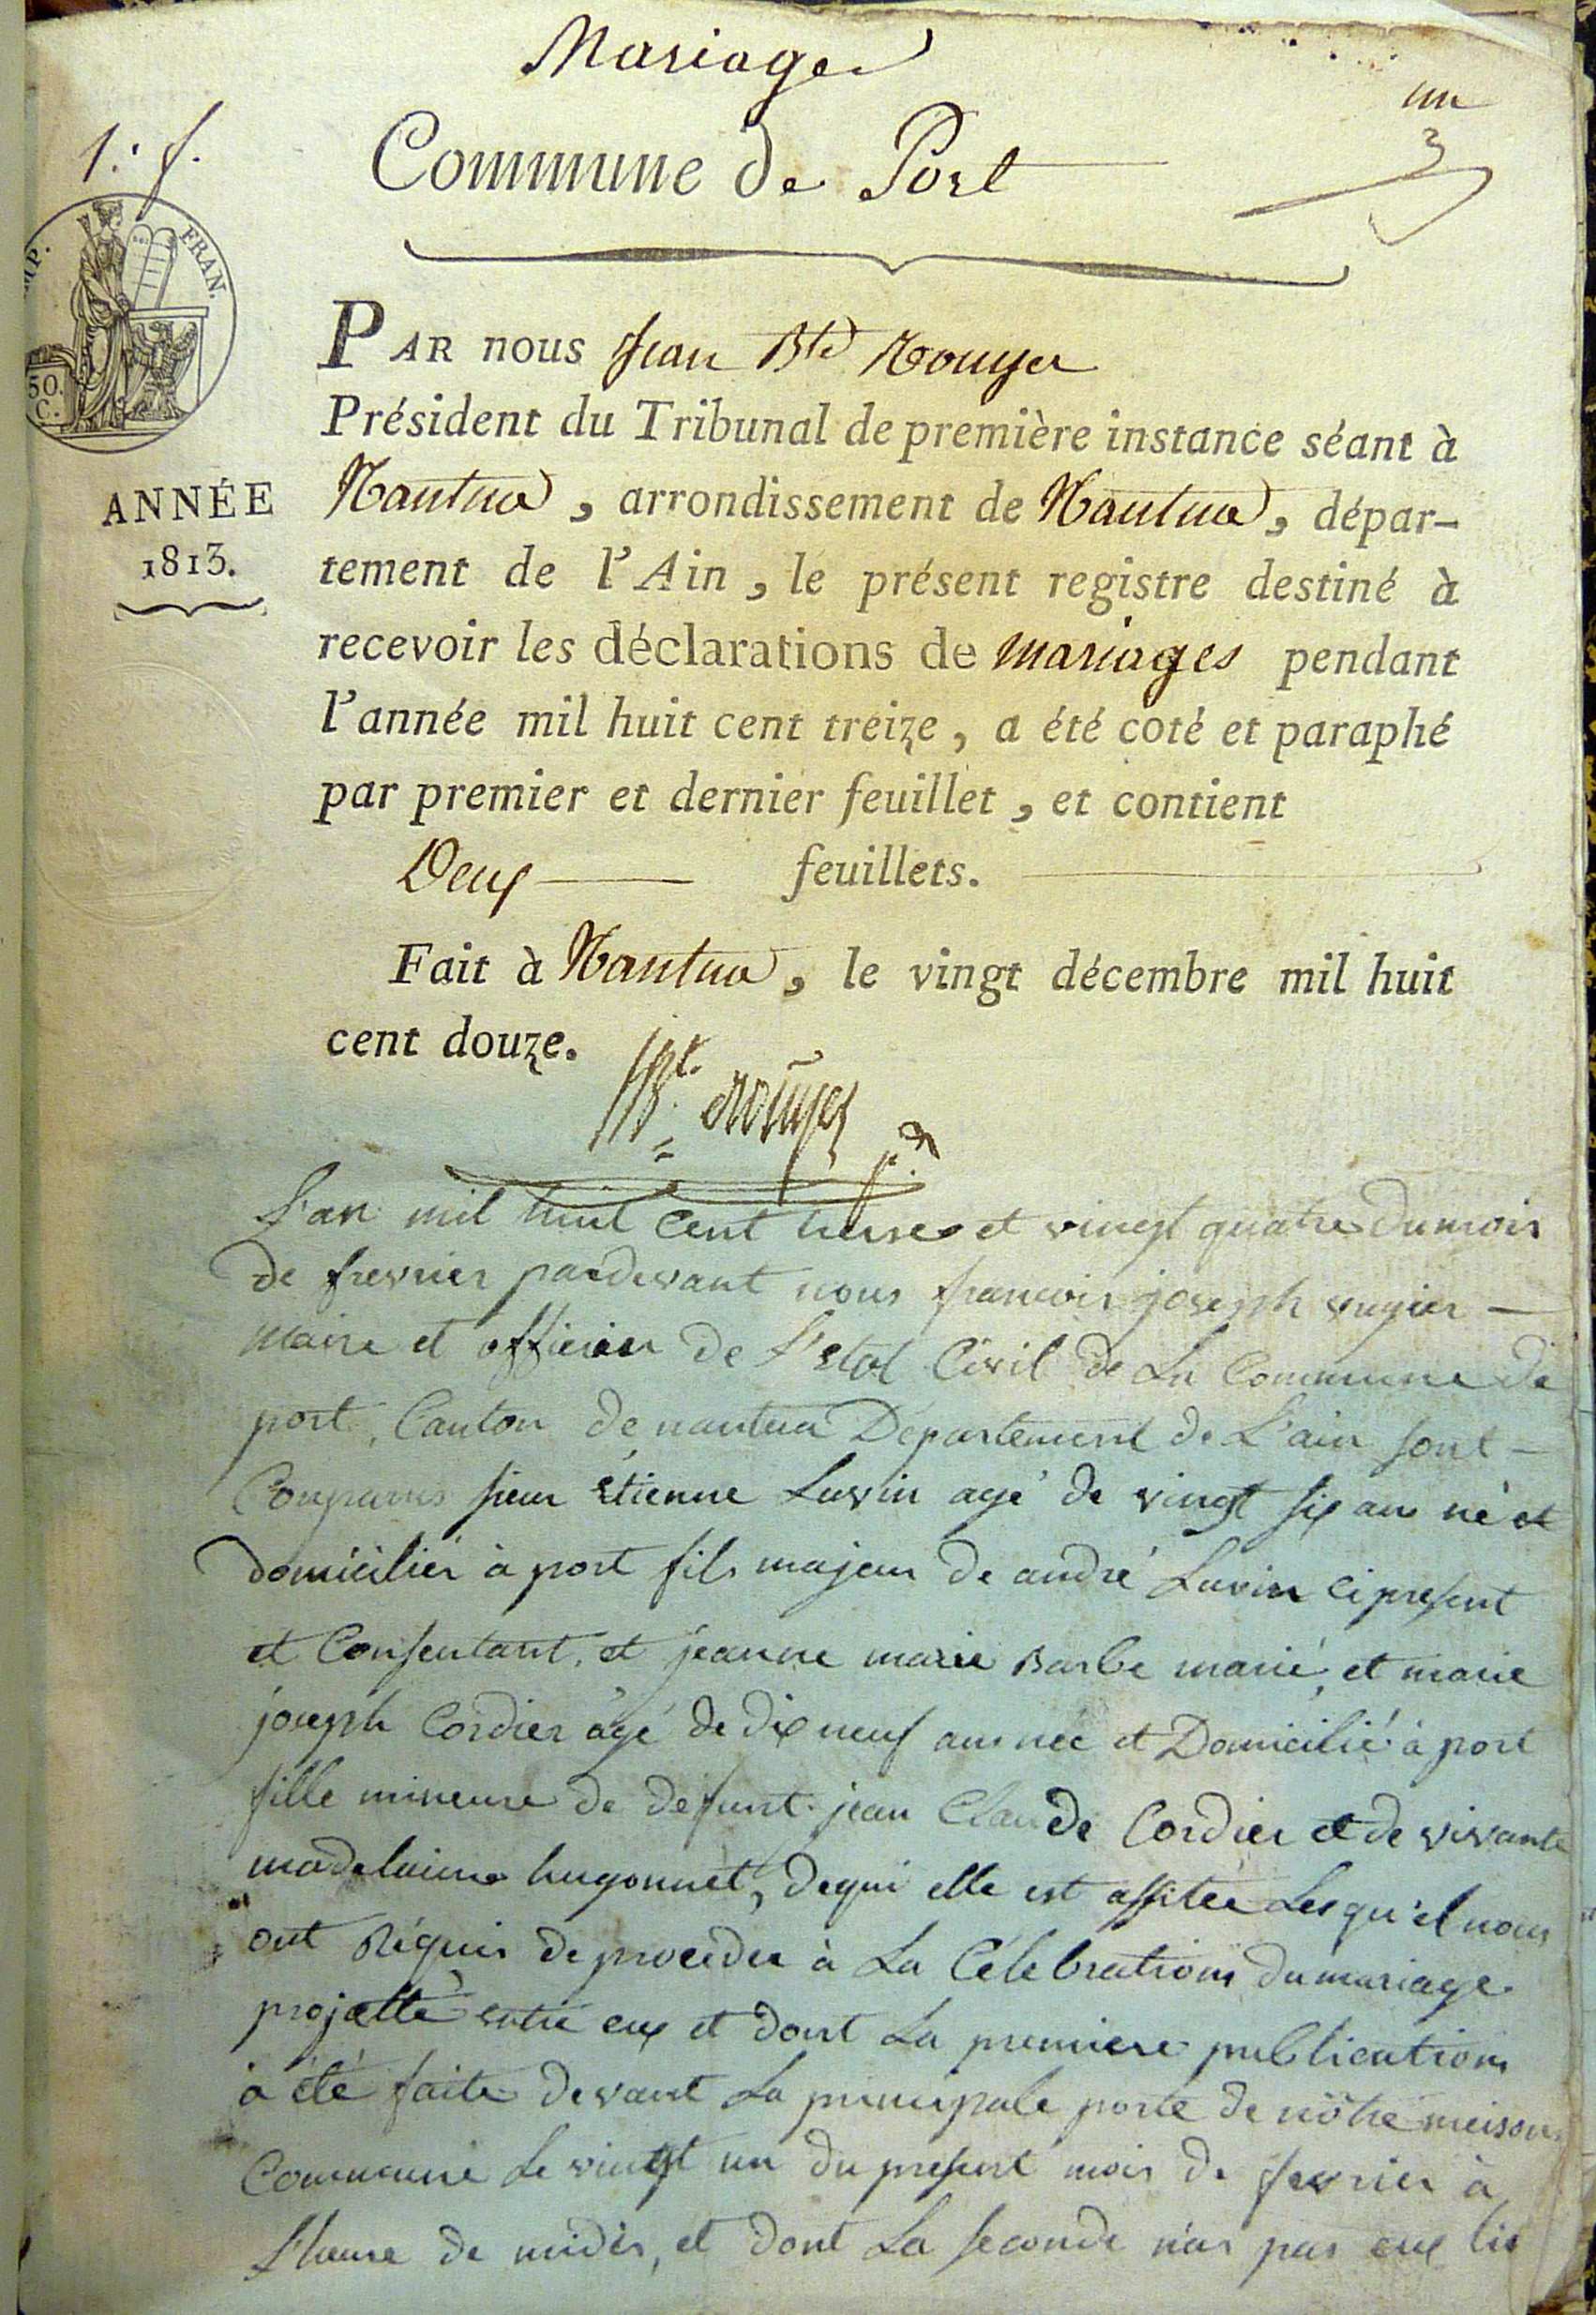 Mariages
un
3
1.r f.
Commune de Port
IMP. FRAN.
50. C.
PAR nous Jean Bte Rouyer
Président du Tribunal de première instance séant à
ANNÉE
1813.
Nantua, arrondissement de Nantua, dépar-
tement de l'Ain, le présent registre destiné à
recevoir les déclarations de mariages pendant
l'année mil huit cent treize, a été coté et paraphé
par premier et dernier feuillet, et contient
Deux feuillets.
Fait à Nantua, le vingt décembre mil huit
cent douze.
JBte Rouyer pdt
L'an mil huit Cent treise et vingt quatre du mois
de frevrier pardevant nous francois joseph
maire et officier de L'etat Civil de La Commune de
port, Canton de nantua Département de L'ain sont
Comparus sieur étienne Luvin agé de vingt six an né et
domicilier à port fils majeur de andré Luvin ci present
et Consentant, et jeanne marie Barbe marié, et marie
joseph Cordier âgé de dix neuf ans née et Domicilié à port
fille mineure de defunt jean Claude Cordier et de vivante
madelaine hugonnet, de qui elle est assitée Les qu'el nous
ont Réquis de proceder à La Célebrations du mariage
projetté entre eux et dont La premiere publications
à été faite devant La principale porte de nôtre meison
Commune Le vingt un du present mois de fevrier à
L'heure de midis, et dont La seconde n'as pas eux lie